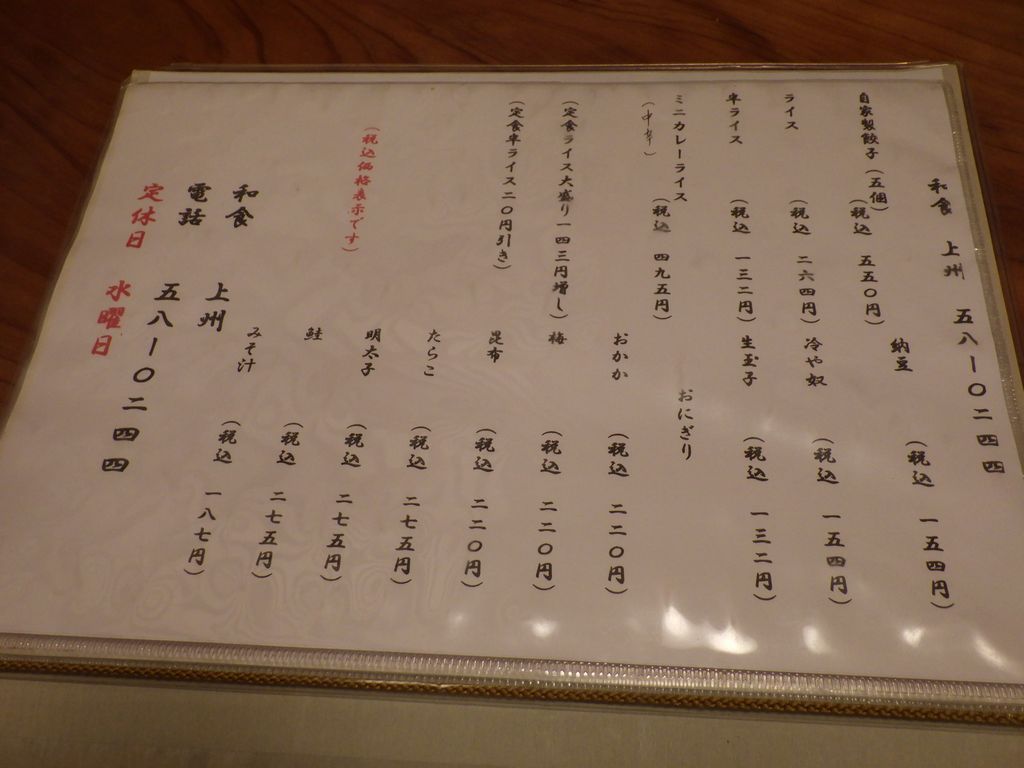 和食 上州 五八ー〇二四四
自家製餃子(五個) (税込 五五〇円)
ライス (税込 二六四円)
半ライス (税込 一三二円)
ミニカレーライス (税込 四九五円)
(定食ライス大盛り一四三円増し)
(定食半ライス二〇円引き)
(税込価格表示です)
納豆 (税込 一五四円)
冷や奴 (税込 一五四円)
生玉子 (税込 一三二円)
おにぎり
おかか (税込 二二〇円)
梅 (税込 二二〇円)
昆布 (税込 二二〇円)
たらこ (税込 二七五円)
明太子 (税込 二七五円)
鮭 (税込 二七五円)
みそ汁 (税込 一八七円)
和食 上州
電話 五八ー〇二四四
定休日 水曜日